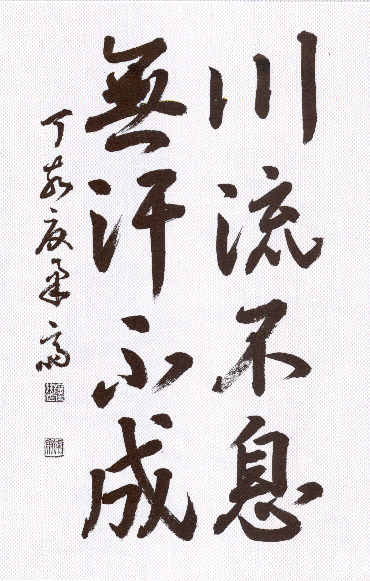 川流不息
無汗不成
丁亥夏